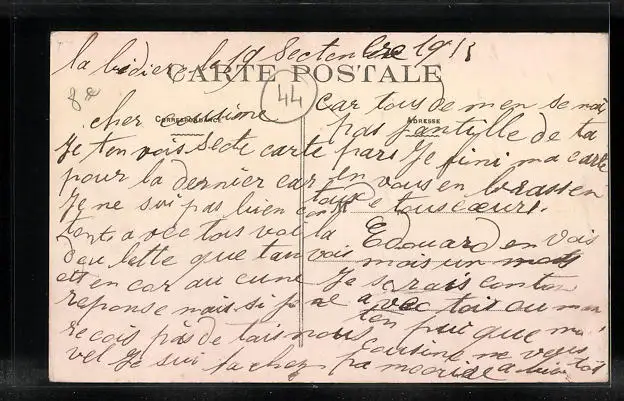 la bidiere le 19 Sectenbre 1915
CARTE POSTALE
44
CORRESPONDANCE
ADRESSE
cher cousine
Je ten vois secte carte
pour la dernier car
Je ne sui pas bien con
tente avec tois voi la
deu lette que tan vois
et en cor au cune
reponse mais si je ne
recois pas de tais nou
vel Je sui fa cher
car tois de men se nai
pas jantille de ta
pars Je fini ma carte
en vous en brassen
tous de tous cœurs.
Edouard en vois
mois un mots
Je serais conton
avec tois ou mon
ten puique ma
cousine ne veus
pa mecrire a bientot